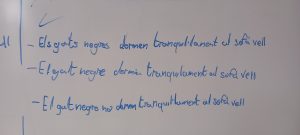 - Els gats negres dormen tranquil·lament al sofà vell
- El gat negre dormia tranquilament al sofà vell
- El gat negre no dormen tranquil·lament al sofà vell